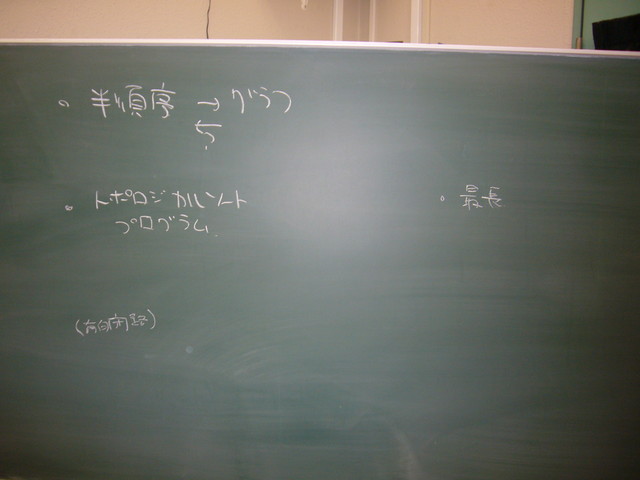 。半順序 → グラフ
←?
。トポロジカルソート
プログラム.
。最長
(有向閉路)